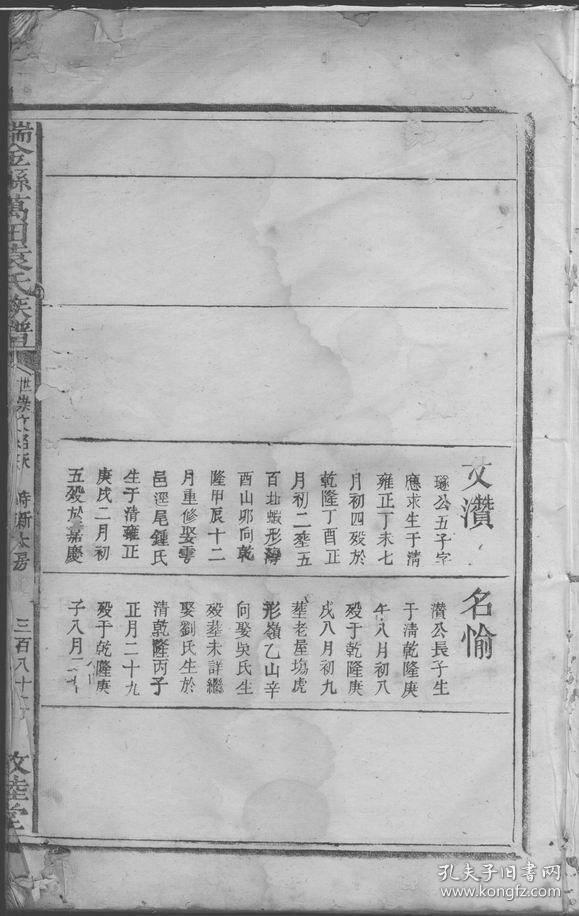 文瓚
公五子字
應求生于清
雍正丁未七
月初四歿於
乾隆丁酉正
月初二塟五
百坵蝦形
酉山卯向乾
隆甲辰十二
月重修娶雩
邑涇尾鍾氏
生于清雍正
庚戌二月初
五歿於嘉慶
名愉
瓚公長子生
于清乾隆庚
午八月初八
歿于乾隆庚
戌八月初九
塟老屋塢虎
形嶺乙山辛
向娶吳氏生
歿塟未詳繼
娶劉氏生於
清乾隆丙子
正月二十九
歿于乾隆庚
子八月二
瑞金縣萬田袁氏族譜
世
房
三百八十
敦睦堂
孔夫子旧书网
www.kongfz.com